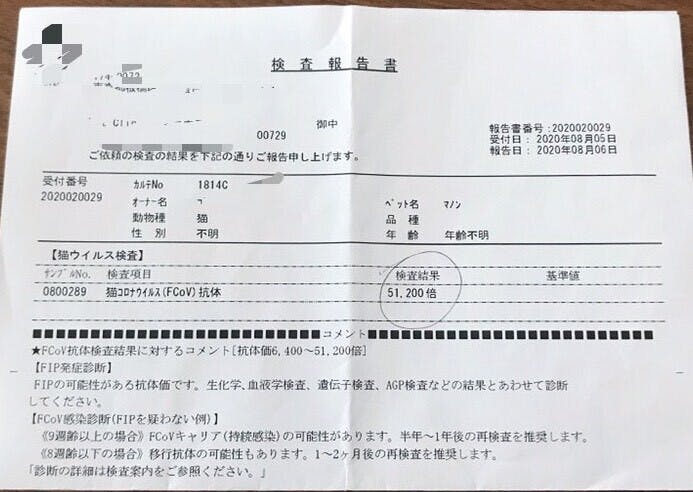 検査報告書
御中
00729
報告書番号:2020020029
受付日:2020年08月05日
報告日:2020年08月06日
ご依頼の検査の結果を下記の通りご報告申し上げます。
受付番号 ｶﾙﾃNo 1814C
2020020029 ｵｰﾅｰ名 ﾍﾟｯﾄ名 ﾏﾉﾝ
動物種 猫 品種
性別 不明 年齢 年齢不明
【猫ウイルス検査】
ｻﾝﾌﾟﾙNo. 検査項目 検査結果 基準値
0800289 猫ｺﾛﾅｳｲﾙｽ(FCoV)抗体 51,200倍
■■■■■■■■■■■■■■■■■■■■■■■■コメント■■■■■■■■■■■■■■■■■■■■■■■■
★FCoV抗体検査結果に対するコメント[抗体価6,400～51,200倍]
【FIP発症診断】
FIPの可能性がある抗体価です。生化学、血液学検査、遺伝子検査、AGP検査などの結果とあわせて診断
してください。
【FCoV感染診断(FIPを疑わない例)】
《9週齢以上の場合》FCoVキャリア(持続感染)の可能性があります。半年～1年後の再検査を推奨します。
《8週齢以下の場合》移行抗体の可能性もあります。1～2ヶ月後の再検査を推奨します。
「診断の詳細は検査案内をご参照ください。」